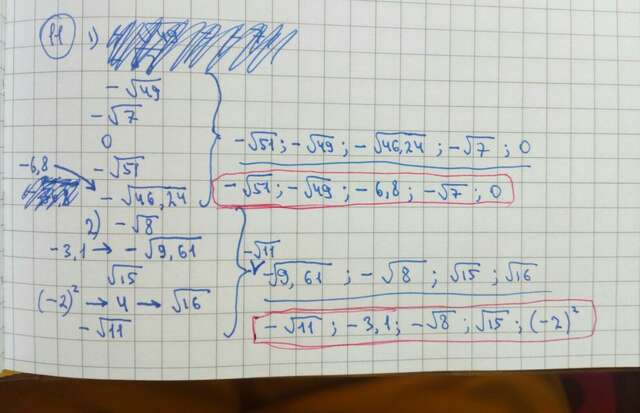 11 1)
-√49
-√7
0
-6,8 → -√51
-√46,24
-√51 ; -√49 ; -√46,24 ; -√7 ; 0
-√51 ; -√49 ; -6,8 ; -√7 ; 0
2) -√8
-3,1 → -√9,61
√15
(-2)² → 4 → √16
-√11
-√11
-√9,61 ; -√8 ; √15 ; √16
-√11 ; -3,1 ; -√8 ; √15 ; (-2)²